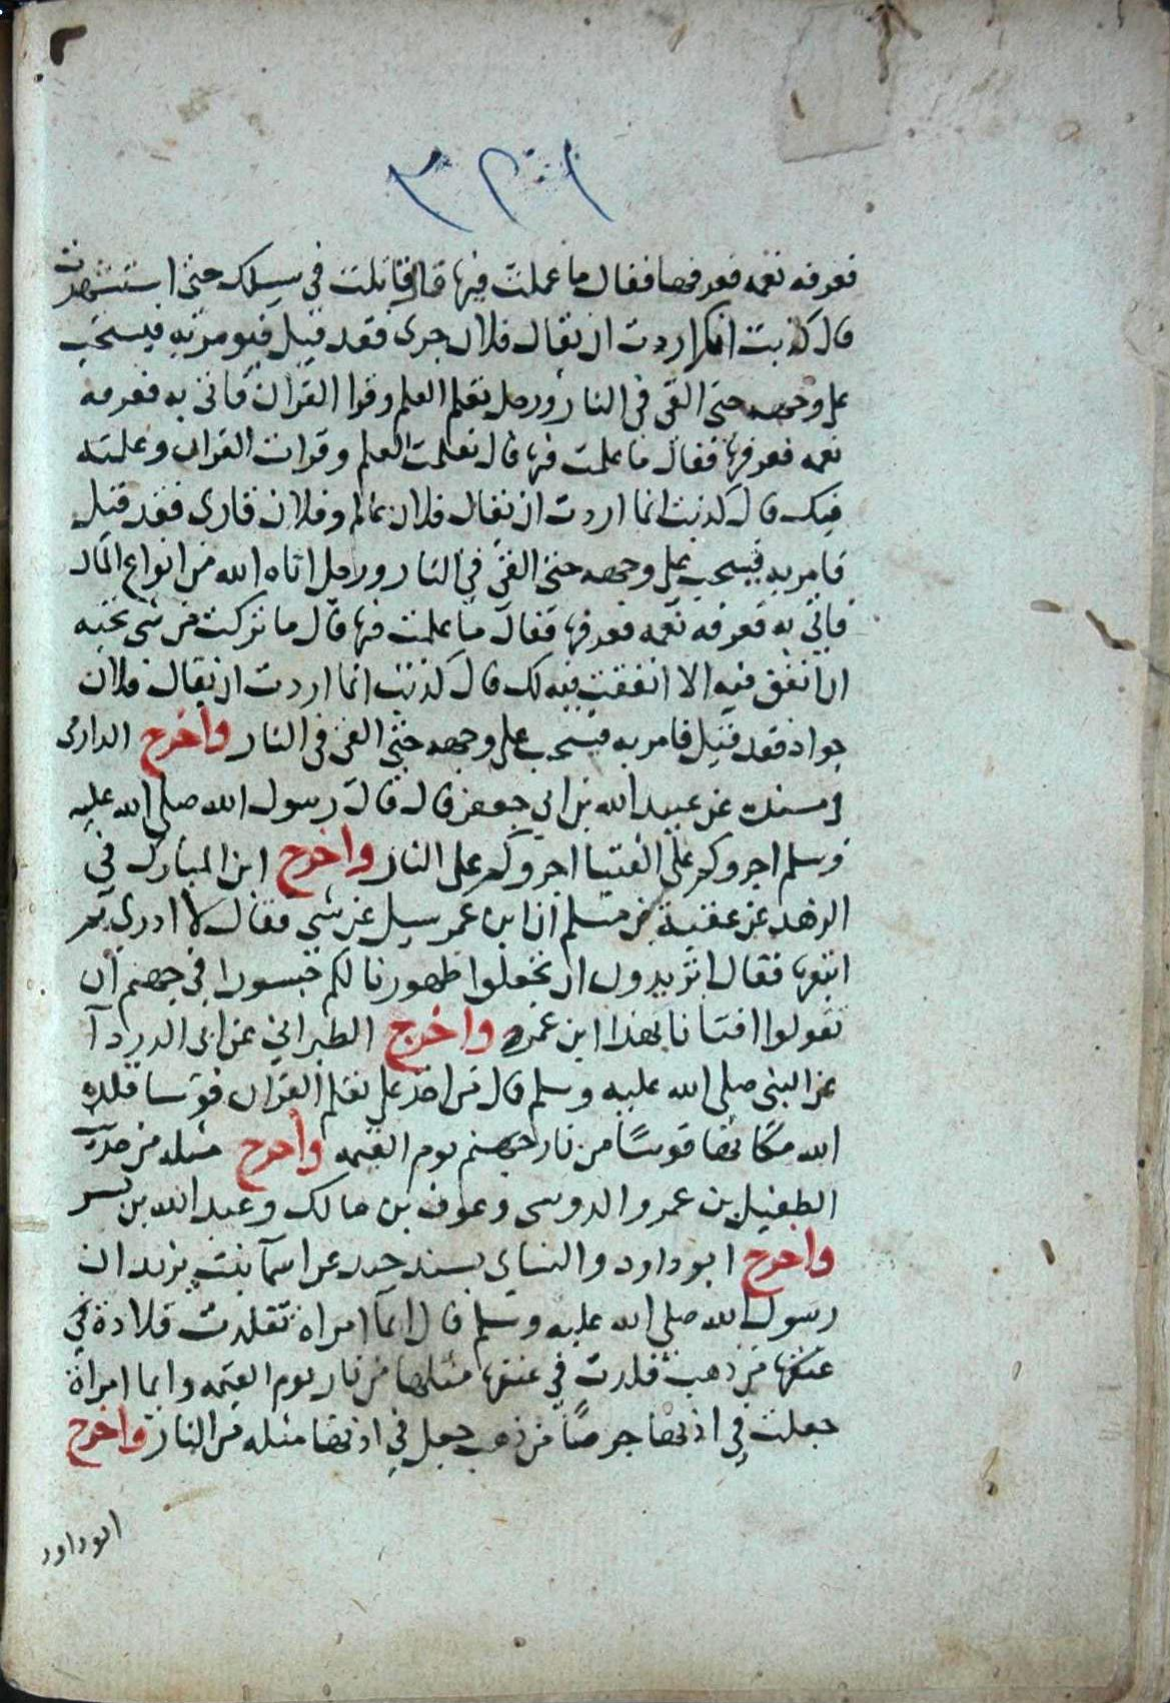 ٢
١٢٣
فعرفه نعمه فعرفها فقال ما عملت فيها قال قاتلت في سبيلك حتى استشهدت
قال كذبت انك اردت ان يقال فلان جرى فقد قيل فيومر به فيسحب
على وجهه حتى القي في النار ورجل تعلم العلم وقرا القران فاتى به فعرفه
نعمه فعرفها فقال ما عملت فيها قال تعلمت العلم وقرات القران وعلمته
فيك قال كذبت انما اردت ان يقال فلان عالم وفلان قارى فقد قيل
فامر به فيسحب على وجهه حتى القي في النار ورجل اتاه الله من انواع المال
فاتي به فعرفه نعمه فعرفها فقال ما عملت فيها قال ما تركت من شى تحبه
ان انفق فيه الا انفقت فيه لك قال كذبت انما اردت ان يقال فلان
جواد فقد قيل فامر به فيسحب على وجهه حتى القي في النار واخرج الدارمى
في مسنده عن عبيد الله بن ابي جعفر قال قال رسول الله صلى الله عليه
وسلم اجروكم على الفتيا اجروكم على النار واخرج ابن المبارك في
الزهد عن عقبة بن مسلم ان ابن عمر سيل عن شي فقال لا ادرى ثم
اتبعها فقال اتريدون ان تجعلوا ظهورنا لكم جسورا في جهنم ان
تقولوا افتانا بهذا ابن عمر واخرج الطبراني عن ابى الدردآ
عن النبى صلى الله عليه وسلم قال من اخذ على تعلم القران قوسا قلده
الله مكانها قوسًا من نار جهنم يوم القيمه واخرج مثله من حديث
الطفيل بن عمرو الدوسى وعوف بن مالك وعبد الله بن بسر
واخرج ابو داود والنساى بسند جيد عن اسمآ بنت يزيد ان
رسول الله صلى الله عليه وسلم قال ايمآ امراة تقلدت قلادة في
عنقها من ذهب قلدت في عنقها مثلها من نار يوم القيمه وايما امراة
جعلت في اذنها خرصًا من ذهب جعل في اذنها مثله من النار واخرج
ابو داود